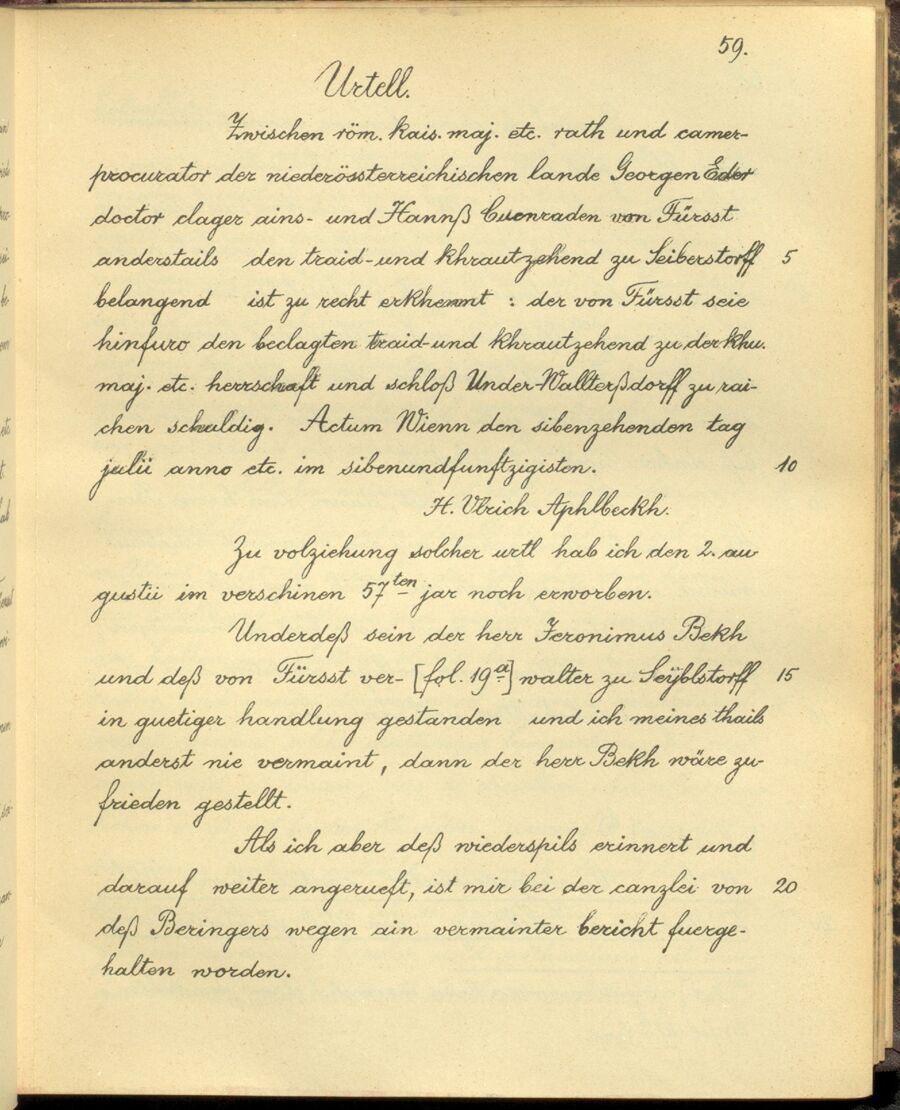 59.
Urtell.
Zwischen röm. kais. maj. etc. rath und camer-
procurator der niederössterreichischen lande Georgen Eder
doctor clager ains- und Hannß Cuenraden von Fürsst
anderstails den traid- und khrautzehend zu Seiberstorff 5
belangend ist zu recht erkhennt : der von Fürsst seie
hinfuro den beclagten traid- und khrautzehend zu der khu.
maj. etc. herrschaft und schloß Under-Wallterßdorff zu rai-
chen schuldig. Actum Wienn den sibenzehenden tag
julii anno etc. im sibenundfunftzigisten. 10
H. Ulrich Aphlbeckh.
Zu volziehung solcher urtl hab ich den 2. au-
gustii im verschinen 57ten jar noch erworben.
Underdeß sein der herr Jeronimus Bekh
und deß von Fürsst ver- [fol. 19a] walter zu Seÿblstorff 15
in guetiger handlung gestanden und ich meines thails
anderst nie vermaint, dann der herr Bekh wäre zu-
frieden gestellt.
Als ich aber deß wiederspils erinnert und
darauf weiter angerueft, ist mir bei der canzlei von 20
deß Beringers wegen ain vermainter bericht fuerge-
halten worden.